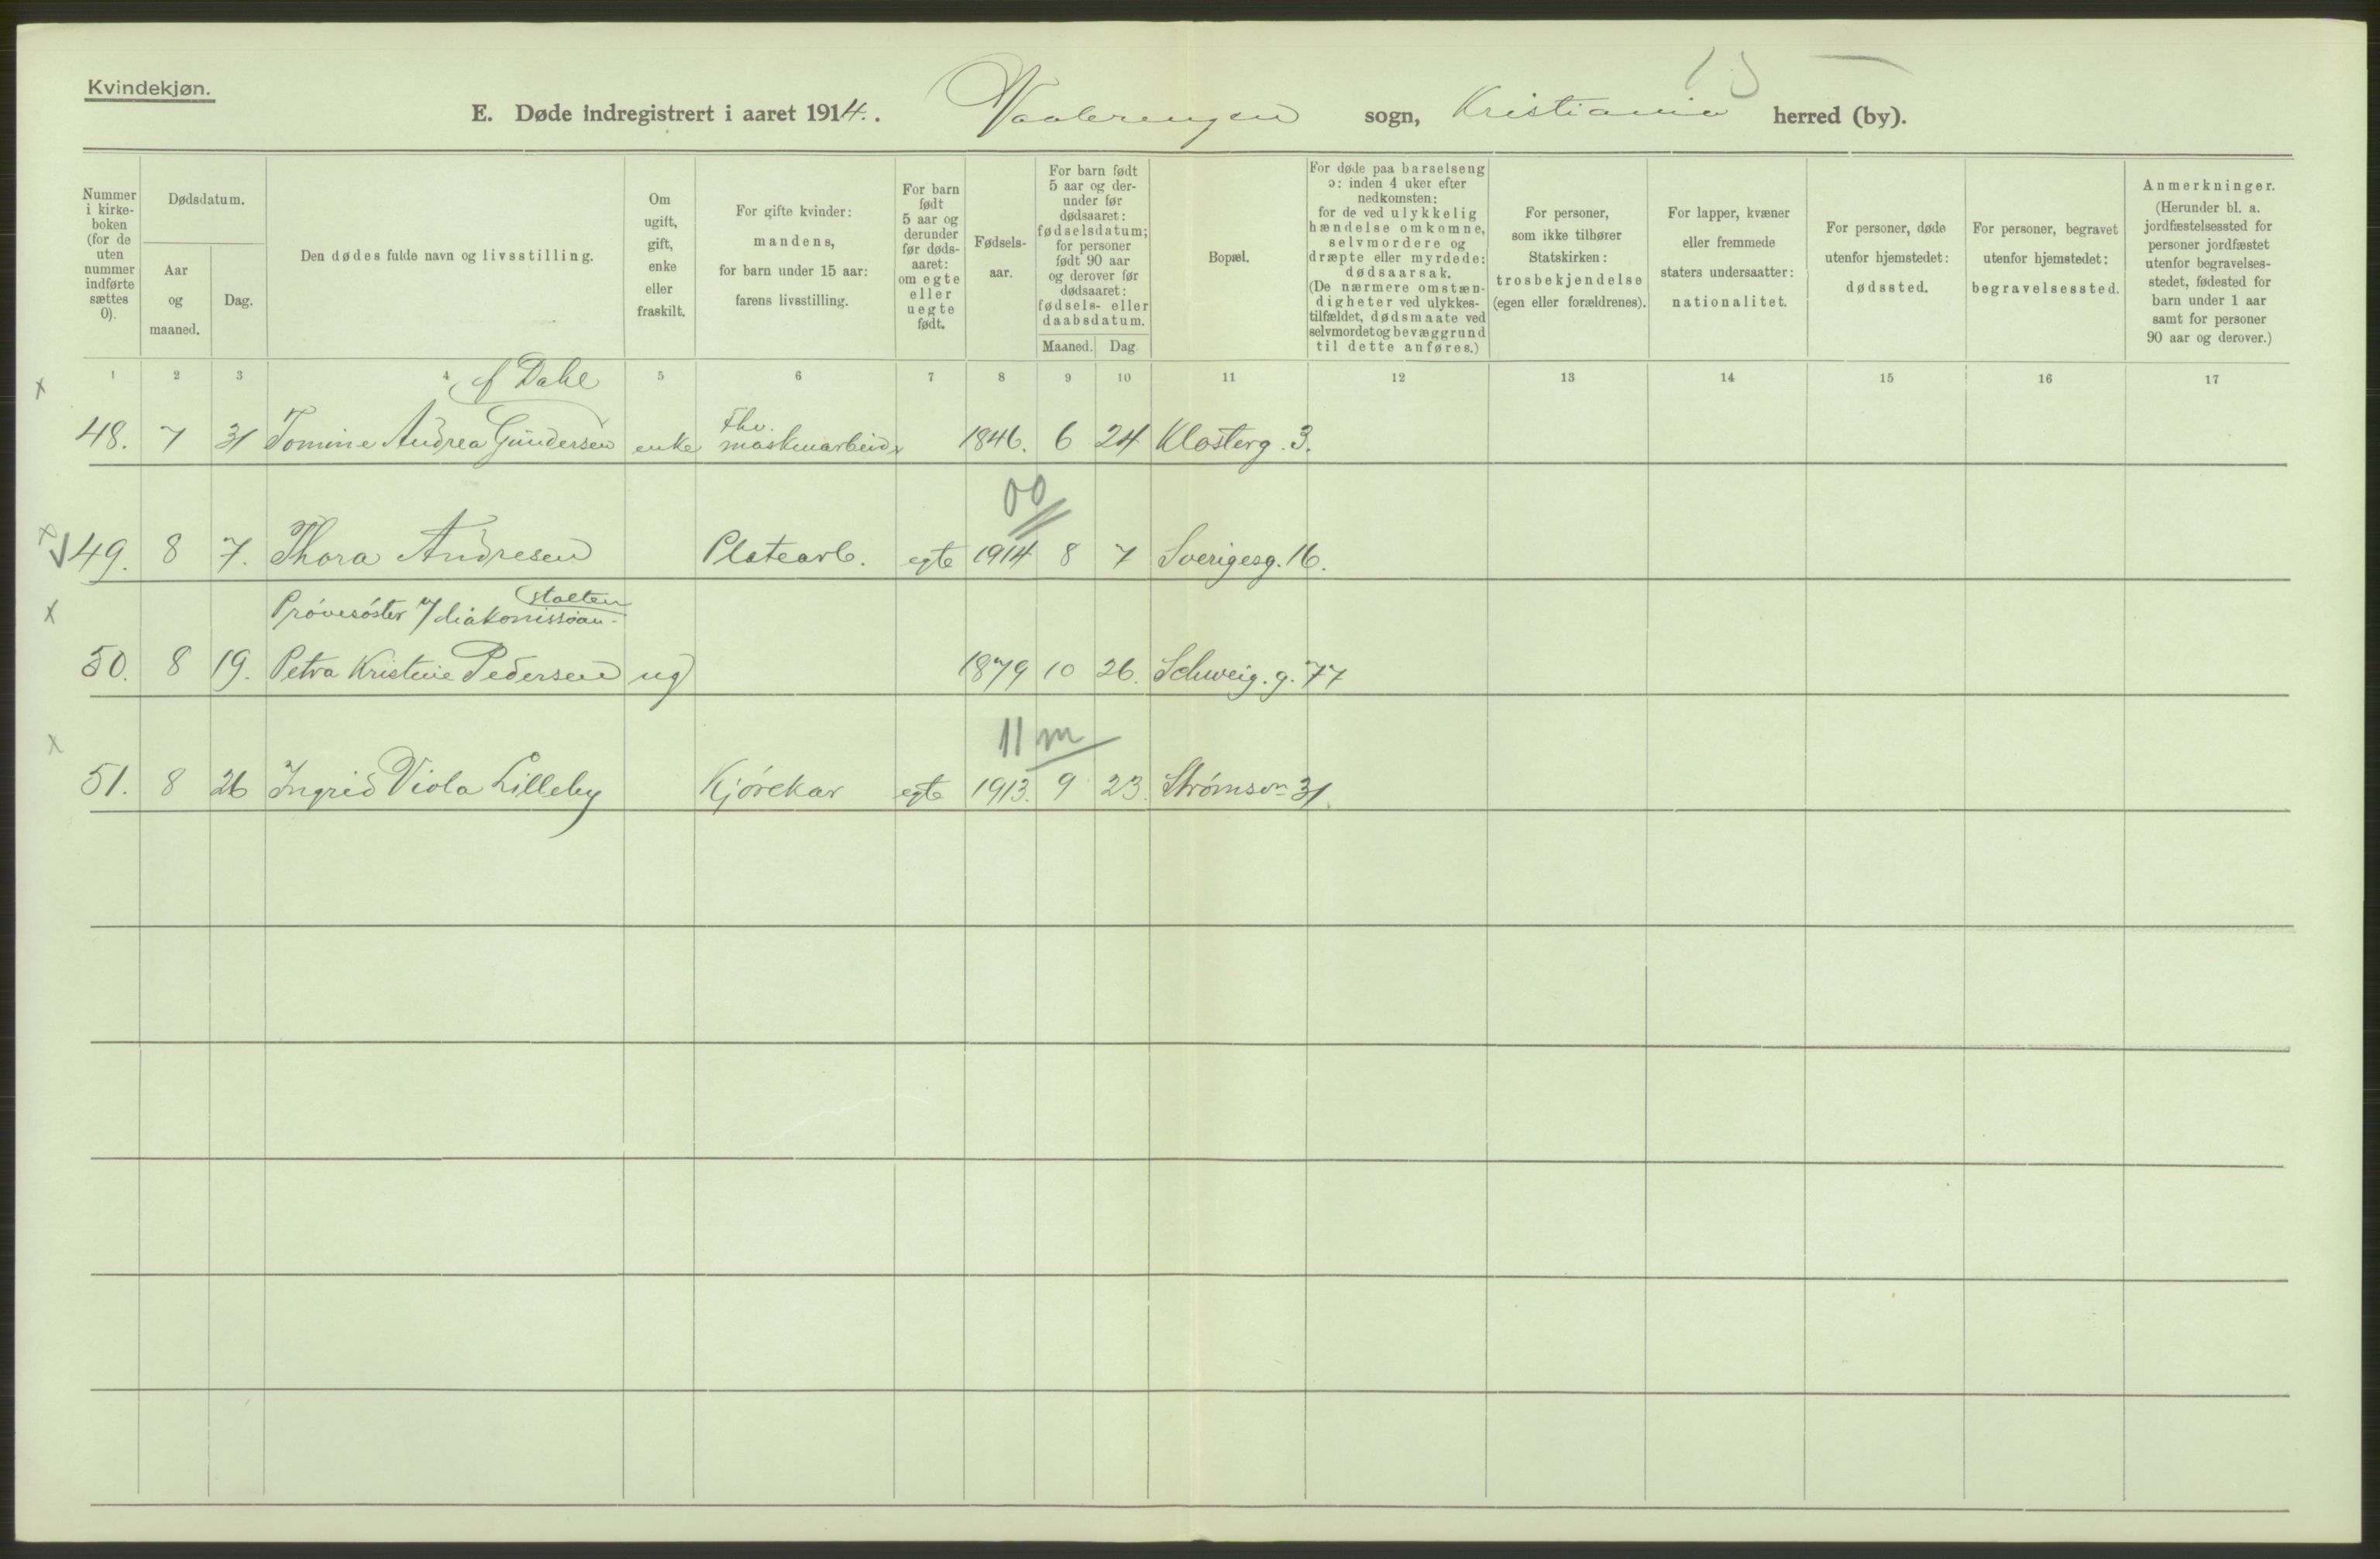 Kvindekjøn.
15
E. Døde indregistrert i aaret 1914. Vaalerengen sogn, Kristiania herred (by).
Nummer i kirke-boken (for de uten nummer indførte sættes 0).
Dødsdatum.
Aar og maaned.
Dag.
Den dødes fulde navn og livsstilling.
Om ugift, gift, enke eller fraskilt.
For gifte kvinder: mandens, for barn under 15 aar: farens livsstilling.
For barn født 5 aar og derunder før døds-aaret: om egte eller uegte født.
Fødsels-aar.
For barn født 5 aar og der-under før dødsaaret: fødselsdatum; for personer født 90 aar og derover før dødsaaret: fødsels- eller daabsdatum.
Maaned. Dag.
Bopæl.
For døde paa barselseng ɔ: inden 4 uker efter nedkomsten: for de ved ulykkelig hændelse omkomne, selvmordere og dræpte eller myrdede: dødsaarsak. (De nærmere omstæn-digheter ved ulykkes-tilfældet, dødsmaate ved selvmordet og bevæggrund til dette anføres.)
For personer, som ikke tilhører Statskirken: trosbekjendelse (egen eller forældrenes).
For lapper, kvæner eller fremmede staters undersaatter: nationalitet.
For personer, døde utenfor hjemstedet: dødssted.
For personer, begravet utenfor hjemstedet: begravelsessted.
Anmerkninger. (Herunder bl. a. jordfæstelsessted for personer jordfæstet utenfor begravelses-stedet, fødested for barn under 1 aar samt for personer 90 aar og derover.)
1 2 3 4 5 6 7 8 9 10 11 12 13 14 15 16 17
x f Dahl
48. 7 31 Tomine Andrea Gundersen enke Fhv. maskinarbeid. 1846. 6 24 Klosterg. 3.
00
x √ 49. 8 7. Thora Andresen Platearb. egte 1914 8 7 Sverigesg. 16.
x Prøvesøster v/ diakonissean-stalten
50. 8 19. Petra Kristine Pedersen ug 1879 10 26. Schweig. g. 77
x 11 m
51. 8 26 Ingrid Viola Lilleby Kjørekar egte 1913. 9 23. Strømsvn 31.